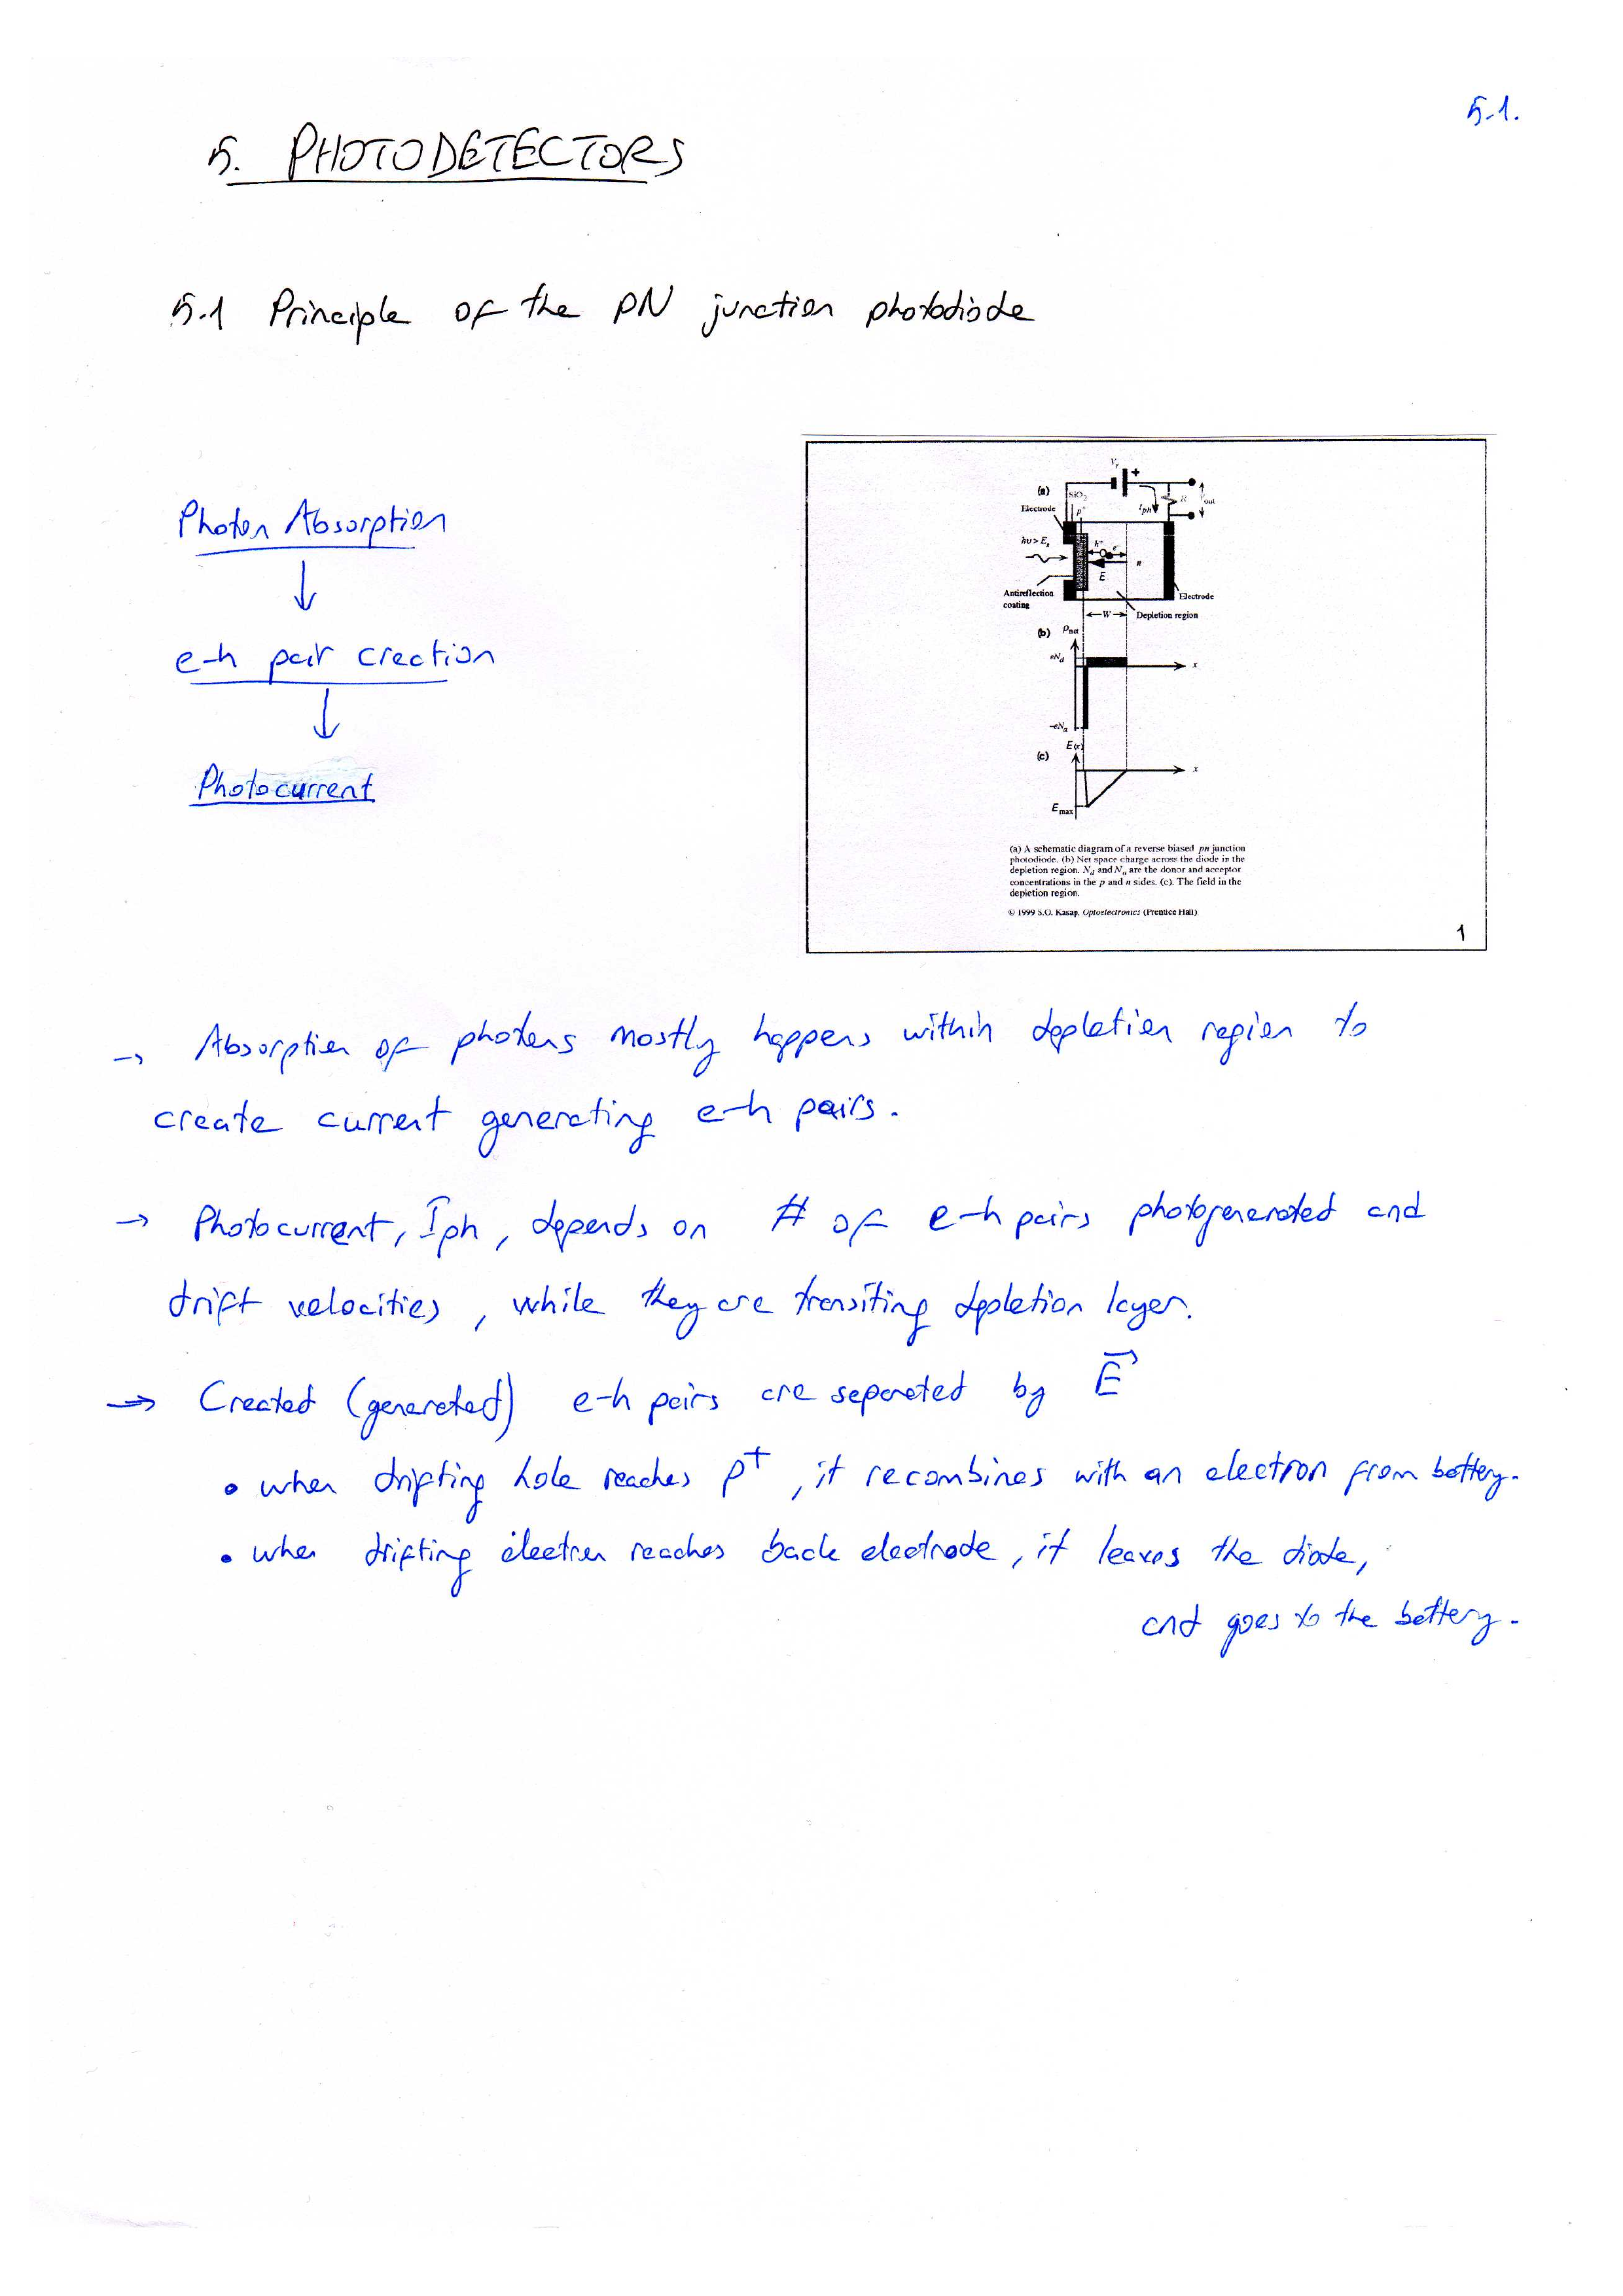 5.1.
5. PHOTODETECTORS
5.1 Principle of the pN junction photodiode
Photon Absorption
↓
e-h pair creation
↓
Photocurrent
Vr
+
(a)
SiO2
Electrode
p+
Iph
R
Vout
hυ > Eg
h+
e-
n
E
Antireflection
coating
Electrode
W
Depletion region
(b)
ρnet
eNd
x
-eNa
(c)
E(x)
x
Emax
(a) A schematic diagram of a reverse biased pn junction
photodiode. (b) Net space charge across the diode in the
depletion region. Nd and Na are the donor and acceptor
concentrations in the p and n sides. (c). The field in the
depletion region.
© 1999 S.O. Kasap, Optoelectronics (Prentice Hall)
1
→ Absorption of photons mostly happens within depletion region to
create current generating e-h pairs.
→ Photocurrent, Iph, depends on # of e-h pairs photogenerated and
drift velocities, while they are transiting depletion layer.
→ Created (generated) e-h pairs are separated by E⃗
• when drifting hole reaches p+, it recombines with an electron from battery.
• when drifting electron reaches back electrode, it leaves the diode,
and goes to the battery.